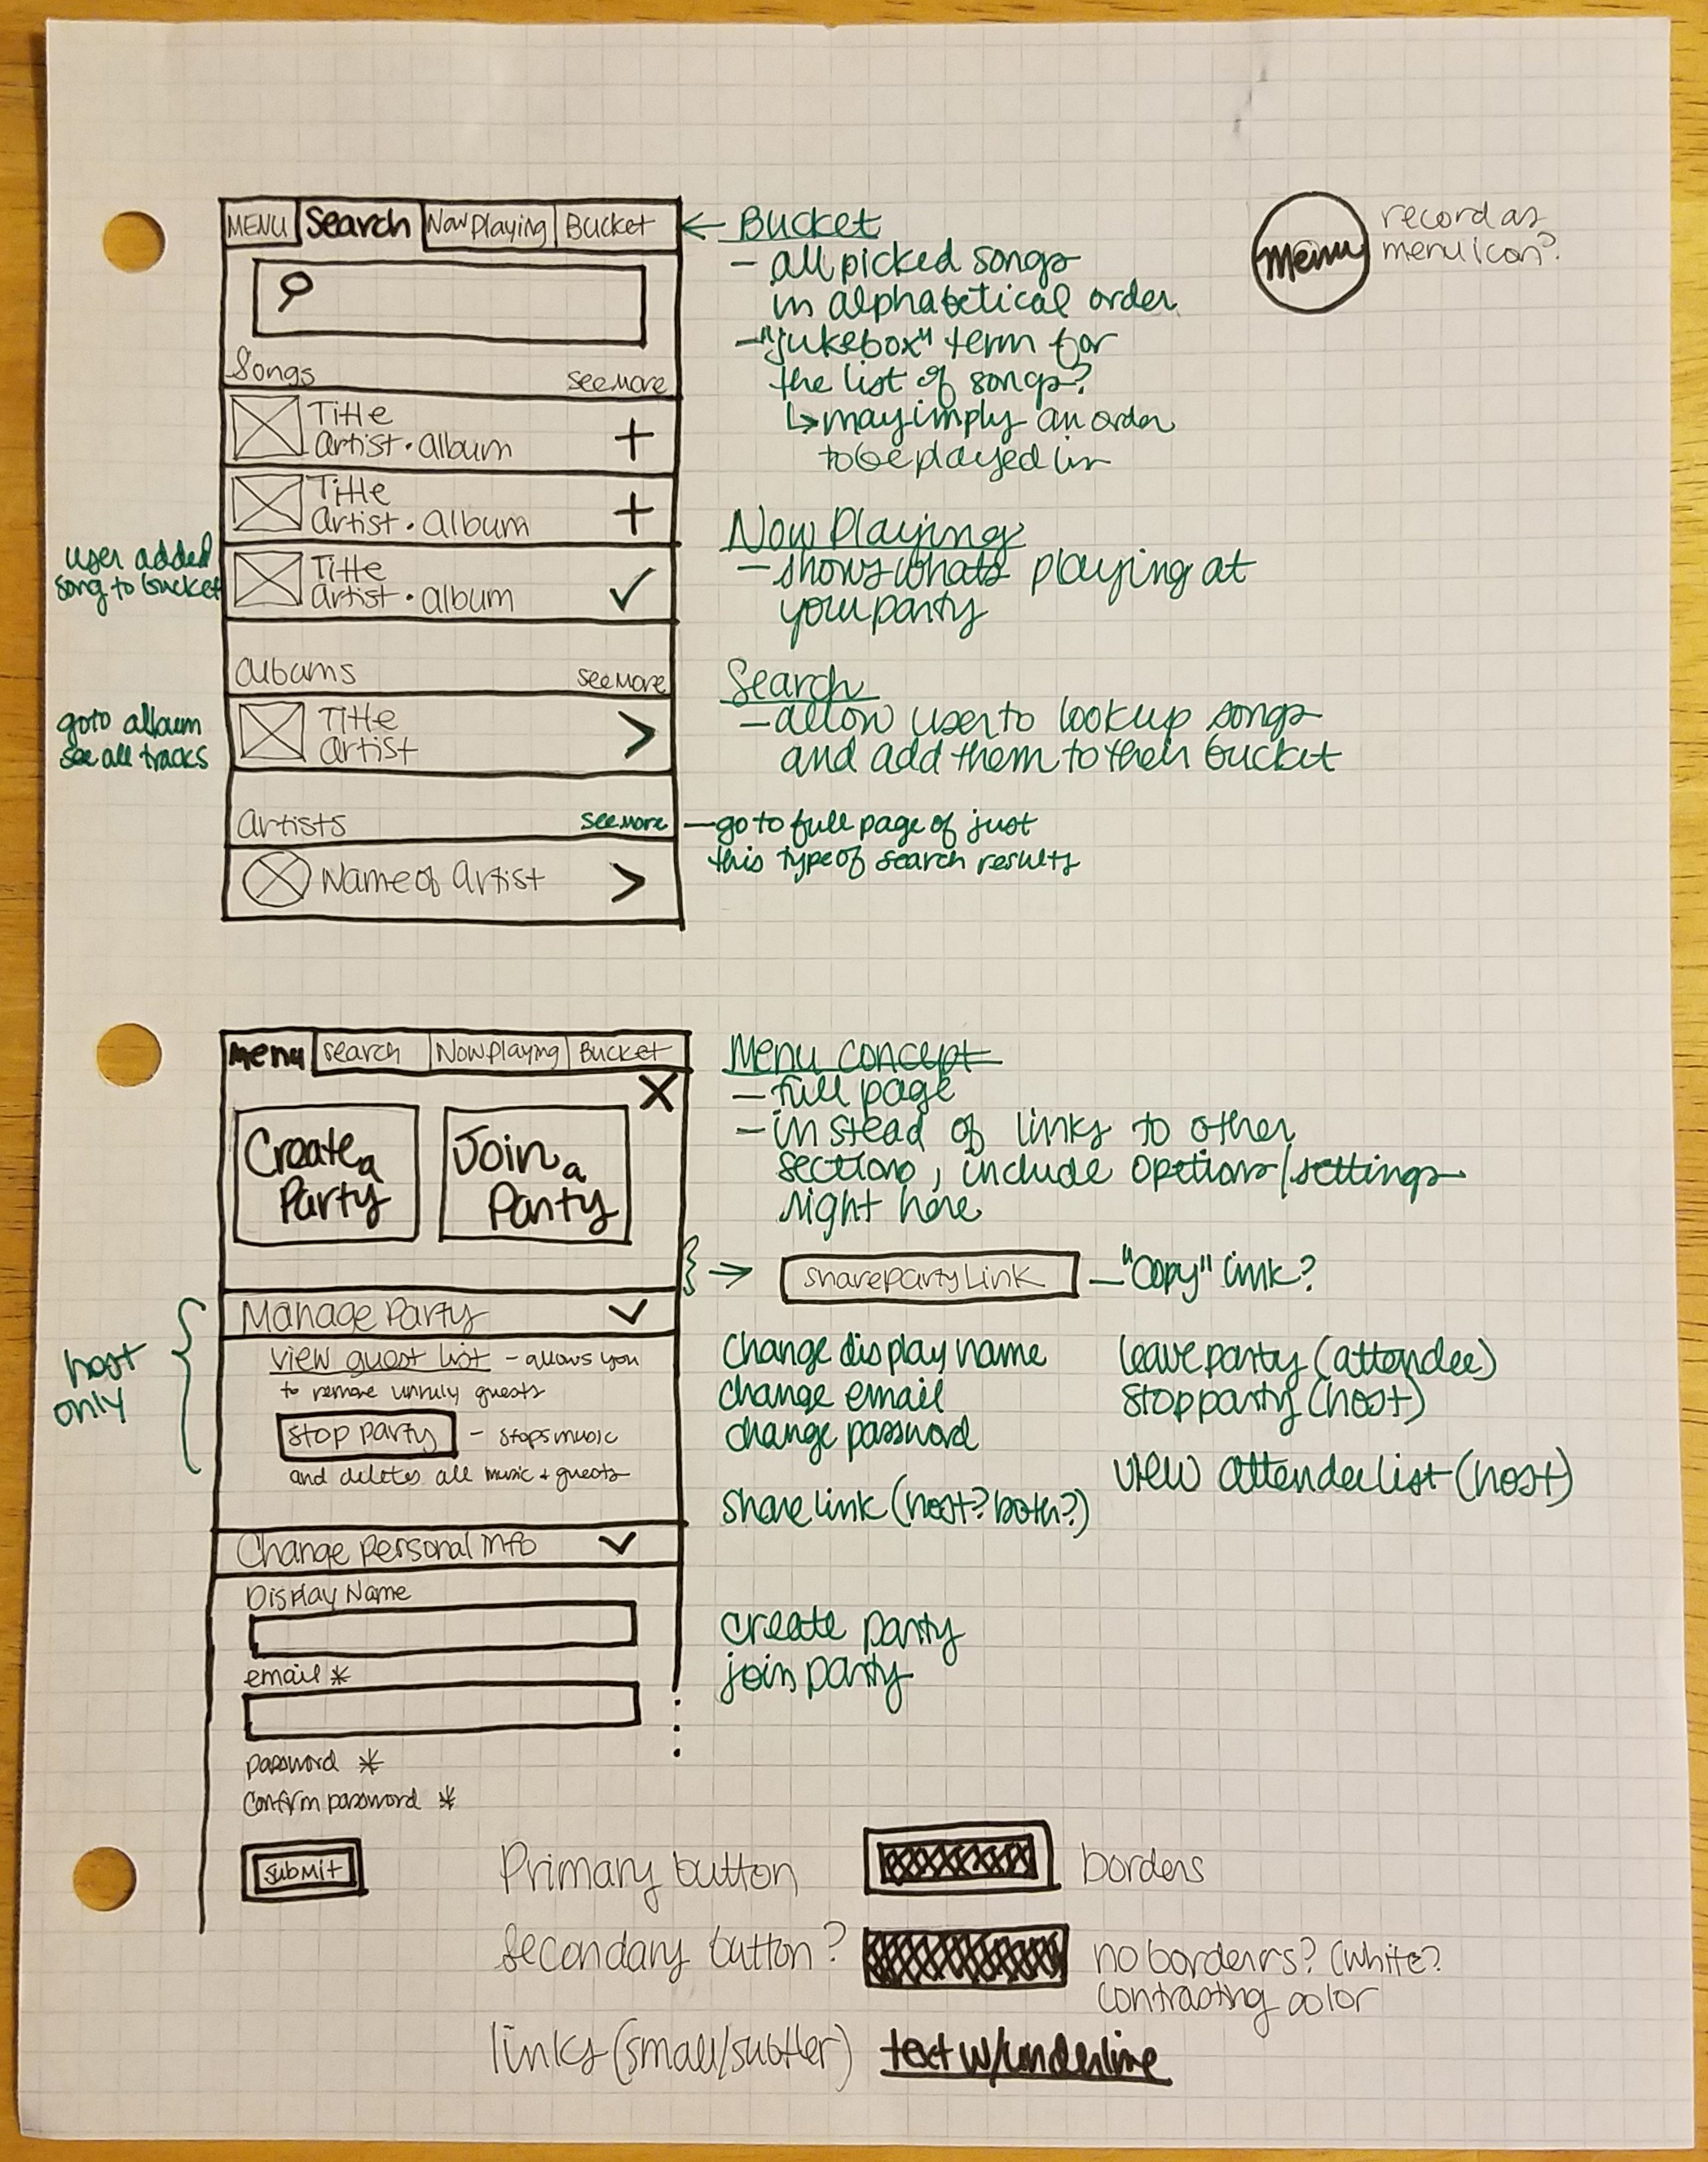 MENU Search Now Playing Bucket
Songs See More
Title
Artist · Album +
Title
Artist · Album +
Title
Artist · Album ✓
user added
song to bucket
Albums See More
Title
Artist >
go to album
see all tracks
Artists See More
Name of Artist >
← Bucket
- all picked songs
in alphabetical order
- "jukebox" term for
the list of songs?
↳ may imply an order
to be played in
Now Playing
- shows whats playing at
your party
Search
- allow user to lookup songs
and add them to their bucket
- go to full page of just
this type of search results
Menu
record as
menu icon?
Menu Search Now Playing Bucket
X
Create a
Party
Join a
Party
Manage Party ✓
view guest list - allows you
to remove unruly guests
stop party - stops music
and deletes all music + guests
host
only
Change Personal Info ✓
Display Name
email *
password *
confirm password *
submit
Menu Concept
- full page
- instead of links to other
sections, include options/settings
right here
→ share party link - "Copy" link?
change display name
change email
change password
share link (host? both?)
leave party (attendee)
stop party (host)
view attendee list (host)
create party
join party
Primary button borders
Secondary button? no borders? (white?
contrasting color
links (small/subtler) text w/underline